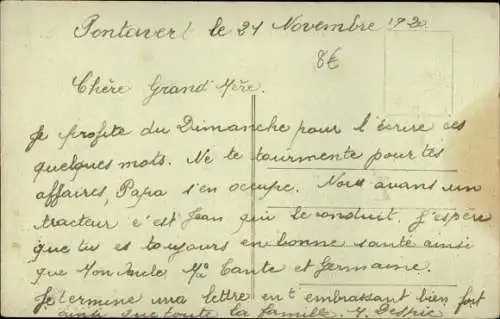 Pontavert le 21 Novembre 1920
8€
Chère Grand'Mère.
Je profite du Dimanche pour t'écrire ces
quelques mots. Ne te tourmente pour tes
affaires, Papa s'en occupe. Nous avons un
tracteur c'est Jean qui le conduit. J'espère
que tu es toujours en bonne santé ainsi
que Mon Oncle Ma Tante et Germaine.
Je termine ma lettre en t embrassant bien fort
ainsi que toute la famille.